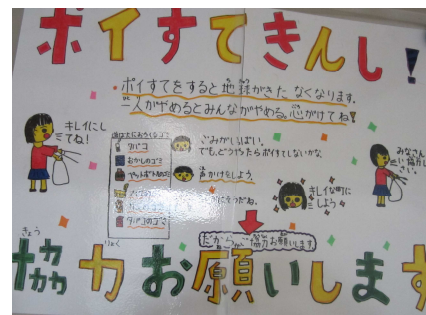 ポイすてきんし!
・ポイすてをすると地球がきたなくなります。
一人がやめるとみんながやめる。心がけてね!
キレイにし
てね!
タバコ
おかしのゴミ
ペットボトルのゴミ
タバコのゴミ
ごみがいっぱい。
でも、どうやったらポイすてしないかな。
声かけをしよう。
キレイな町に
しよう
みなさん
ご協力
ださい。
だから、ご協力お願いします
きょう
りょく
協力お願いします